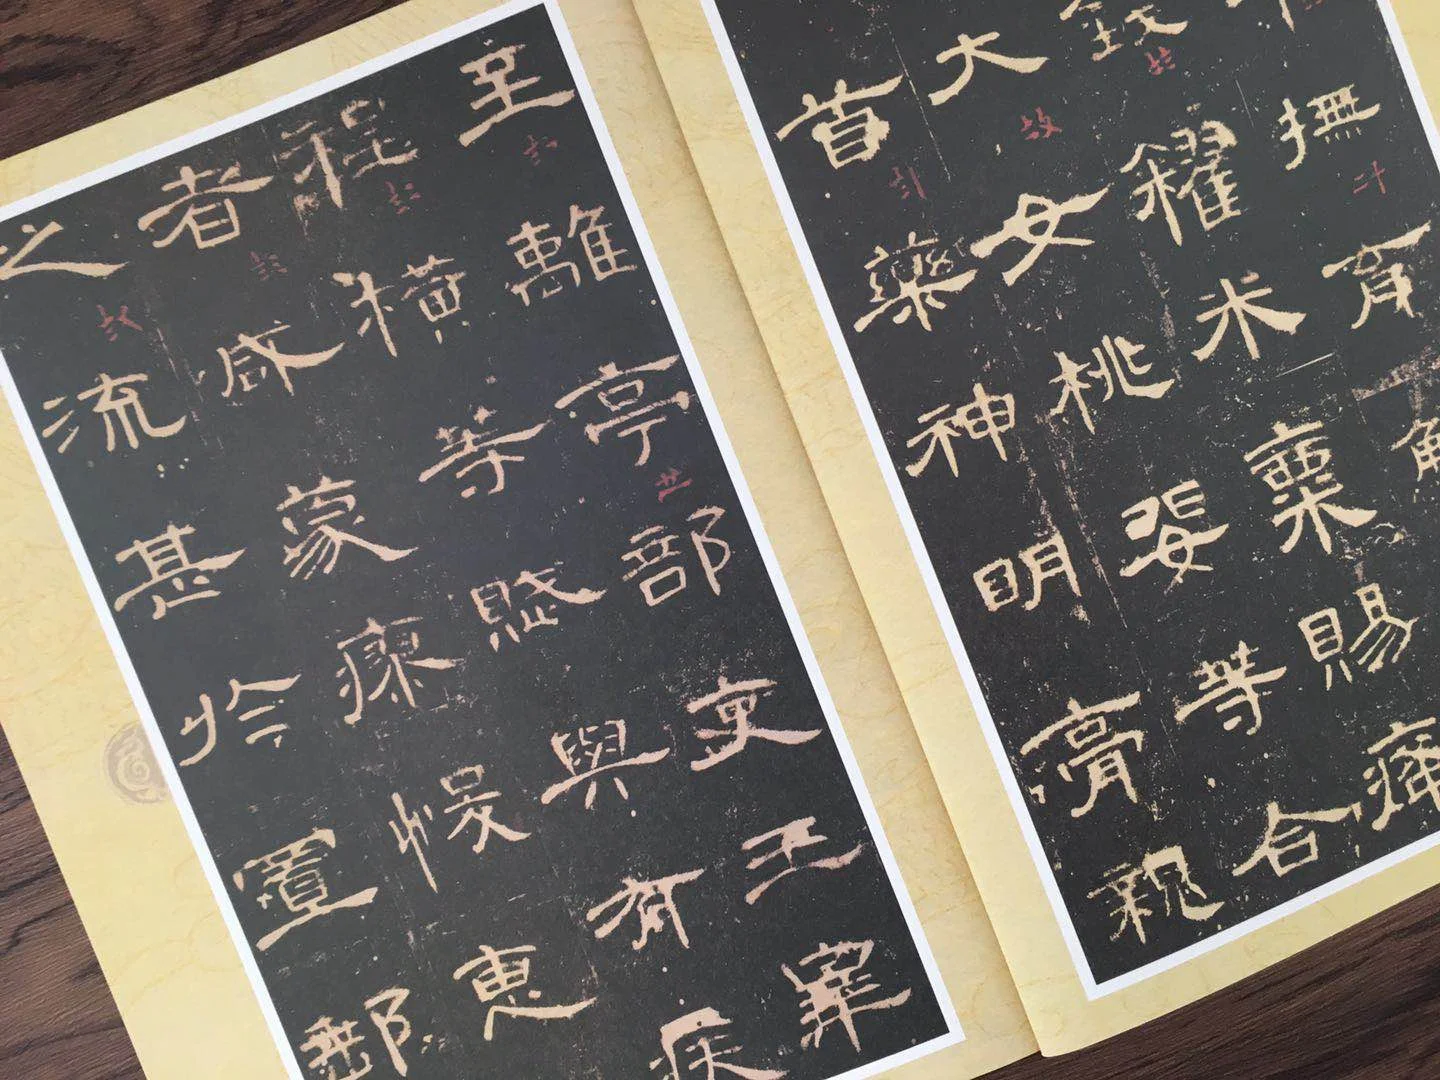 撫育
錢糴米粟賜癃
大女桃婓等合
首藥神明膏親
至離亭部吏王皋
程橫等賦與有疾
者咸蒙瘳悛惠
之流甚於置郵